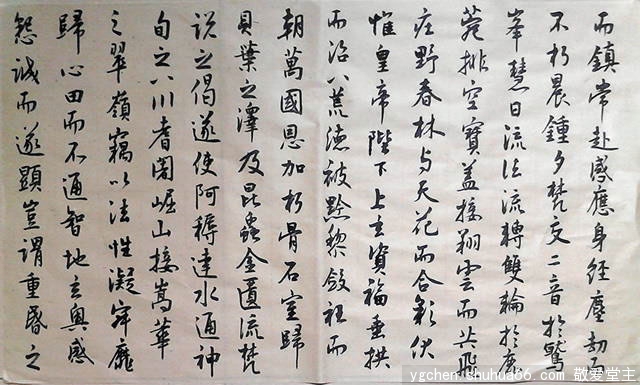 而鎮常赴感應身經塵劫
不朽晨鍾夕梵交二音於鷲
峯慧日流法流轉雙輪於鹿
菀排空寶蓋接翔雲而共飛
莊野春林与天花而合彩伏
惟皇帝陛下上玄資福垂拱
而治八荒德被黔黎斂衽而
朝萬國恩加朽骨石室歸
貝葉之澤及昆蟲金匱流梵
説之偈遂使阿耨達水通神
甸之八川耆闍崛山接嵩華
之翠嶺竊以法性凝寂靡
歸心田而不通智地玄奧感
懇誠而遂顯豈謂重昏之
ygchen.shuhua66.com 敬爱堂主